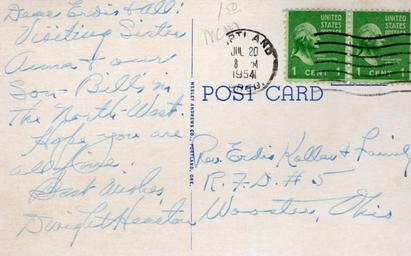 Dear Erdis & all:
Visiting Sister
Anna & our
Son - Bill in
The North-West.
Hope you are
all fine.
Best Wishes,
Dwight Heaston
PORTLAND
JUL 20
8 M
1954
UNITED
STATES
POSTAGE
1 CENT 1
UNITED
STATES
POSTAGE
1 CENT 1
POST CARD
WESLEY ANDREWS CO., PORTLAND, ORE.
Rev. Erdis, & Family
R.F.D. # 5
Wooster, Ohio